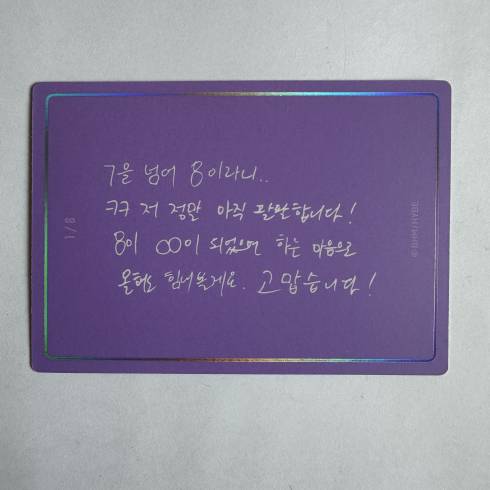 7을 넘어 8이라니..
ㅋㅋ 저 정말 아직 팔팔합니다!
8이 ∞이 되었으면 하는 마음으로
올해도 힘내볼게요. 고맙습니다!
1/8
© BHM / HYBE